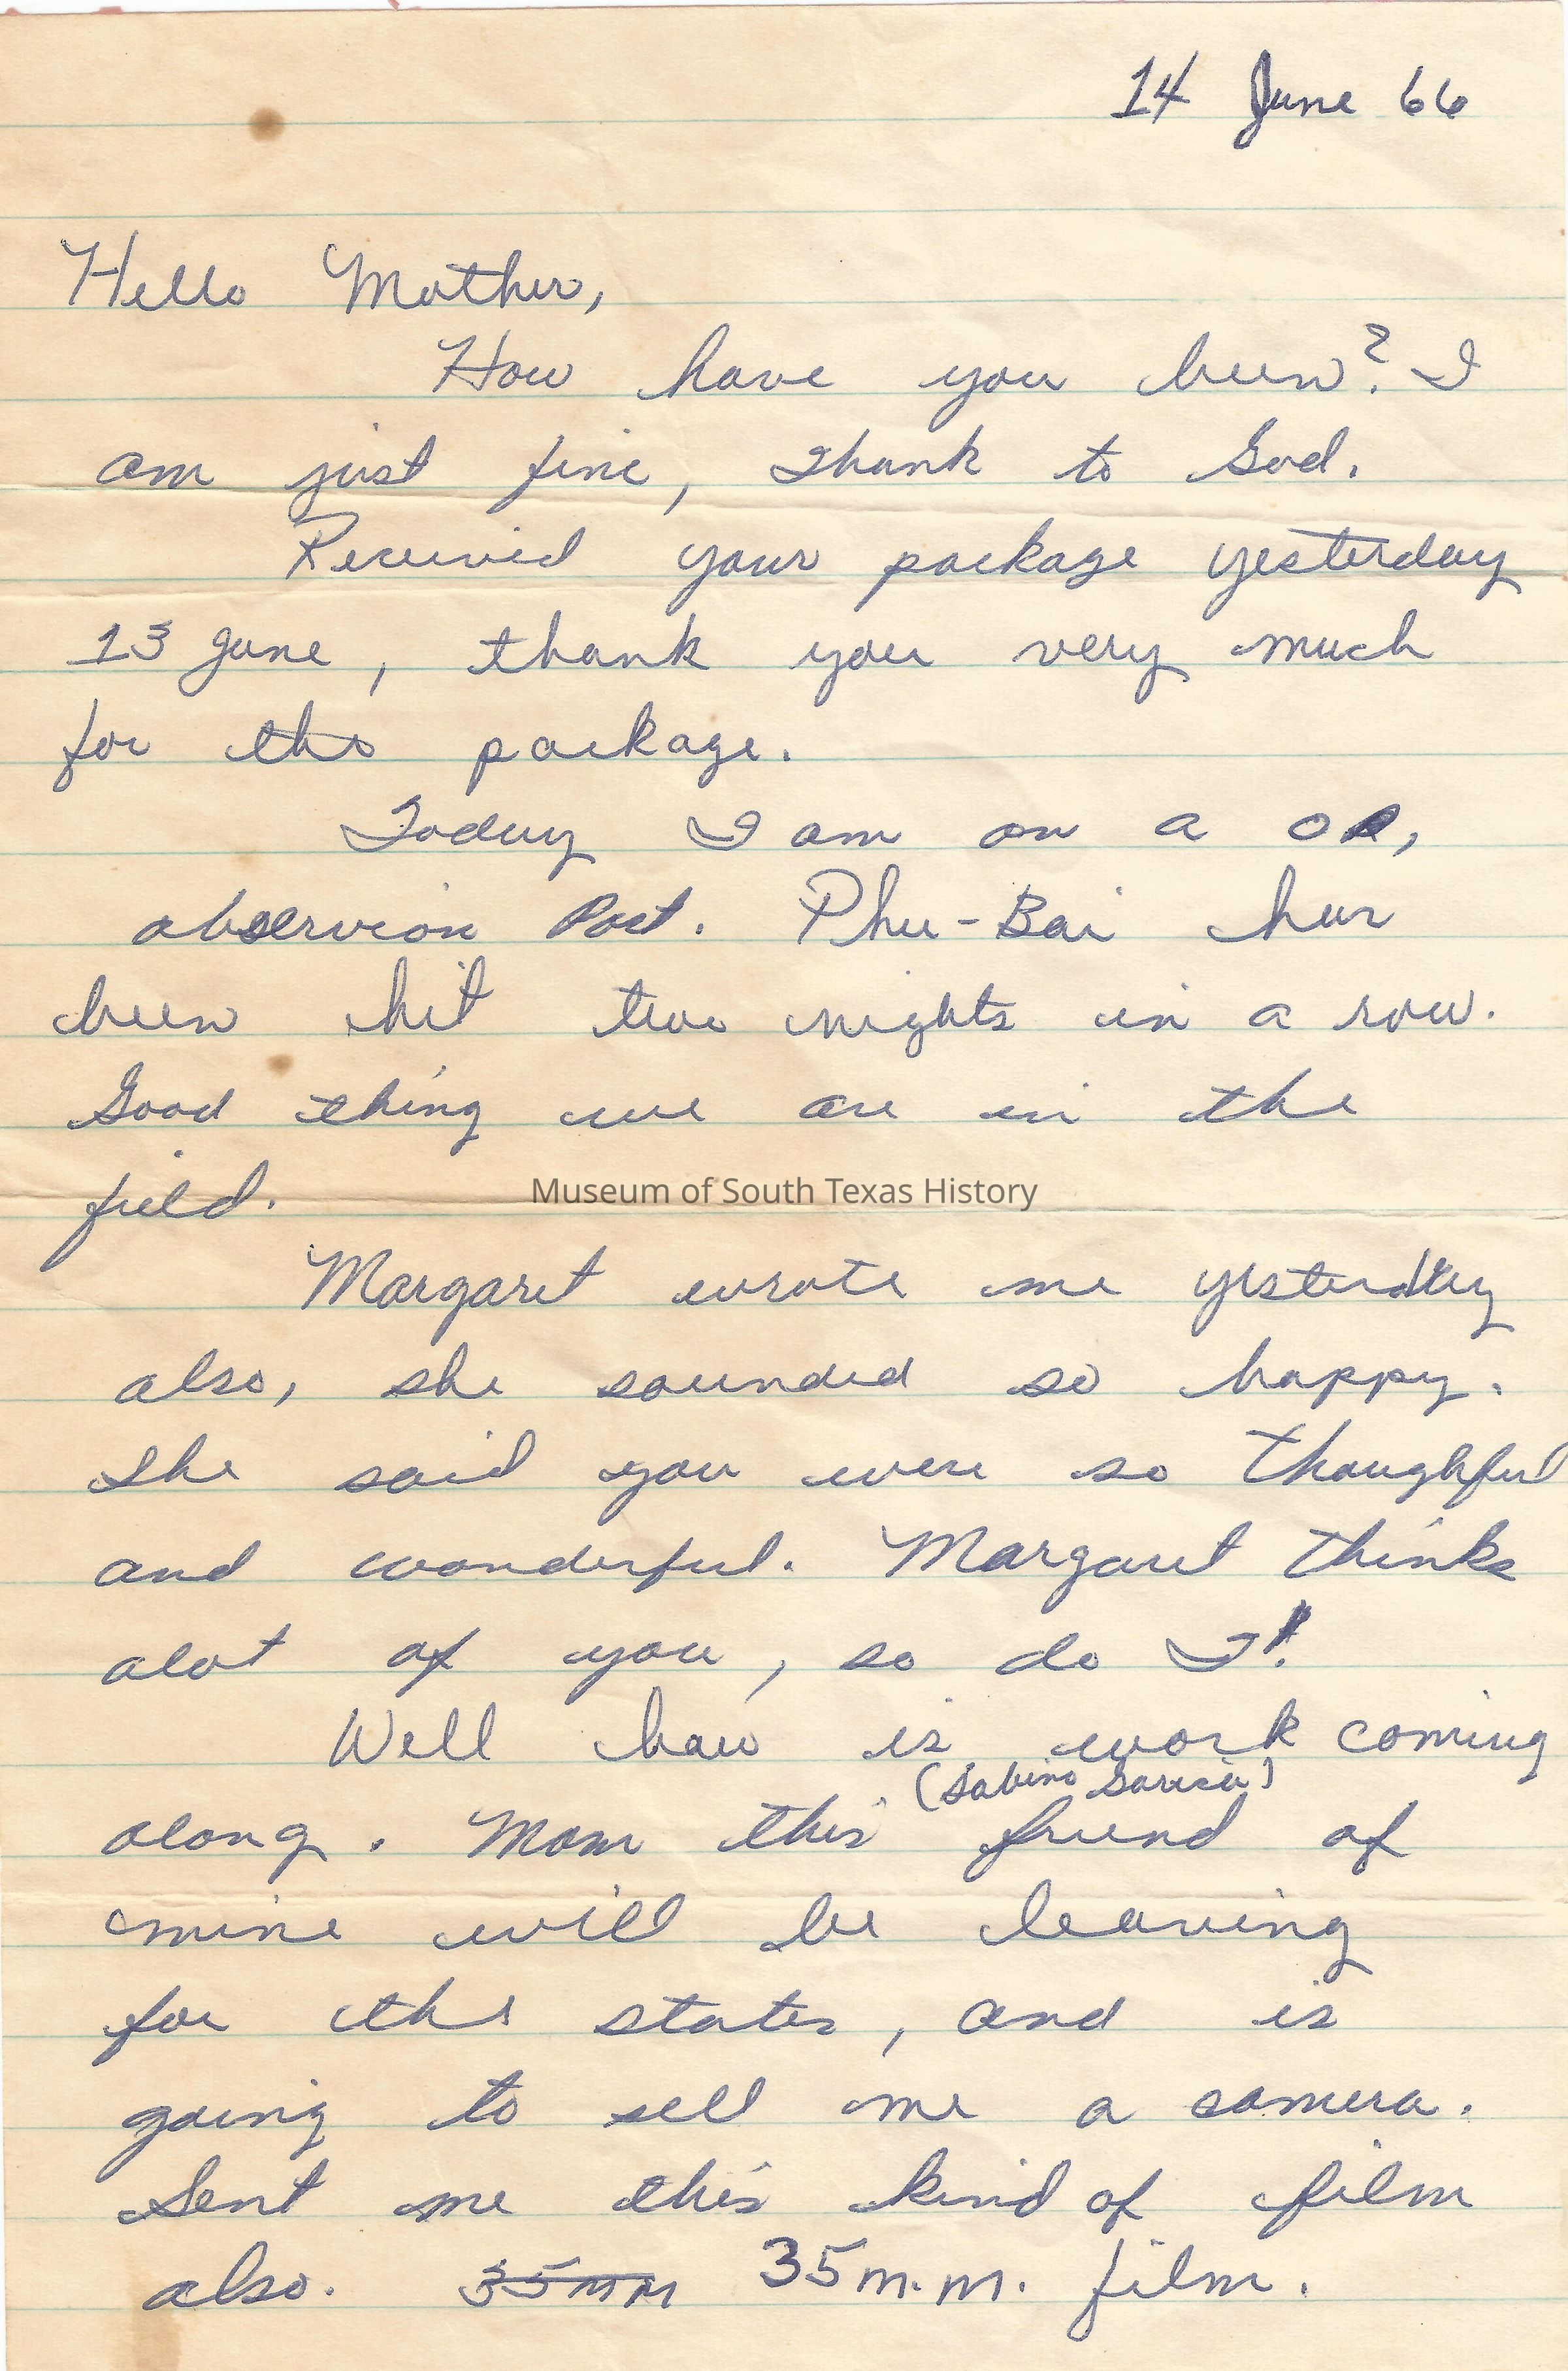 14 June 66
Hello Mother,
How have you been? I
am just fine, thank to God.
Received your package yesterday
13 June, thank you very much
for the package.
Today I am on a OP,
observion Post. Phu-Bai has
been hit two nights in a row.
Good thing we are in the
field.
Museum of South Texas History
Margaret wrote me yesterday
also, she sounded so happy.
She said you were so thoughful
and wonderful. Margaret thinks
alot of you, so do I!
Well how is work coming
(Sabino Garcia)
along. Mom this friend of
mine will be leaving
for the states, and is
going to sell me a camera.
Sent me this kind of film
also. 35mm 35m.m. film.